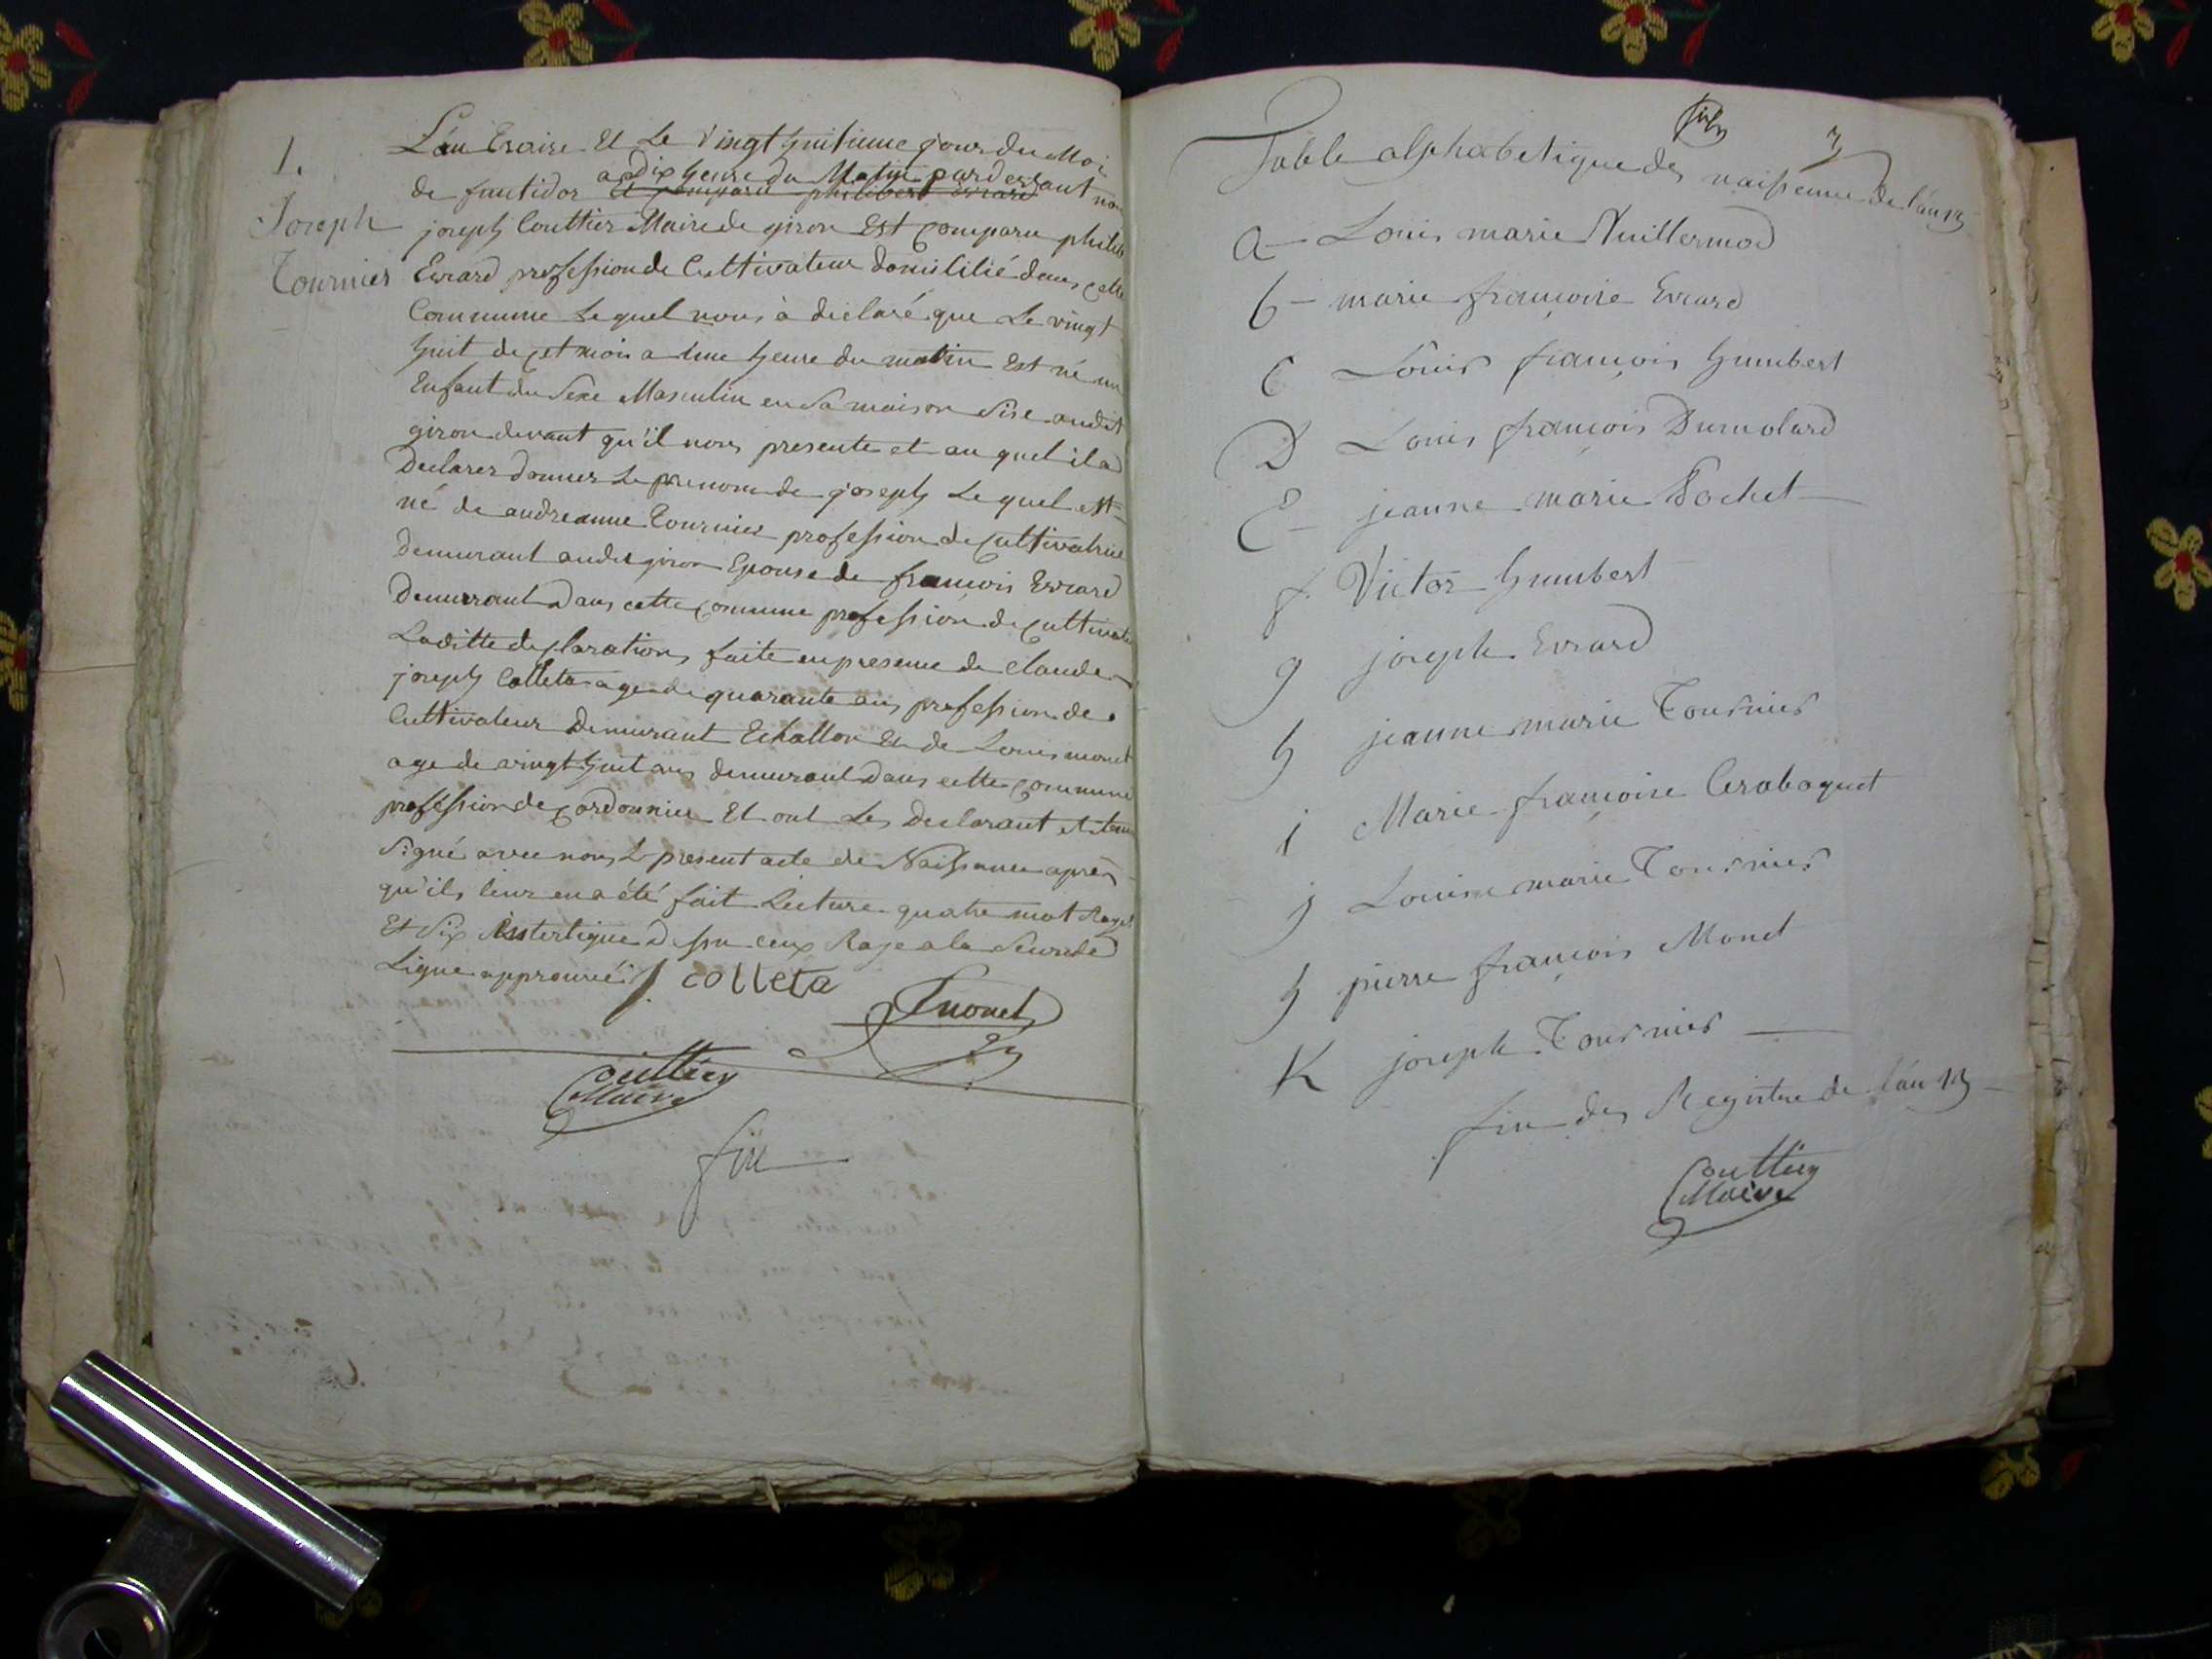 1.
Joseph
Tournier
L'an Traize Et Le vingt huitieme jour du Moi
de frutidor a Dix heure du Matin pardessant nous
Et comparu philibert Evrard
joseph Couttier Maire de giron Est Comparu philib
Evrard profession de Cultivateur domisilié dans cette
Commune Le quel nous à déclaré que Le vingt
huit de cet mois a Une heure du matin Est né un
Enfant du Sexe Masculin en Sa maison Sise audit
giron devant qu'il nous presente et au quel il a
Declarer donner Le prenom de joseph Le quel est
né de andreanne Tournier profession de Cultivatrice
Demurant audit giron Epouse de françois Evrard
Demurant Dans cette Comune profession de Cultivateu
Laditte declaration faite en presense de Claude
joseph Colleta age de quarante ans profession de
Cultivateur Demurant Echallon Et de Louis monet
age de vingt huit ans demurant Dans cette Commune
profession de Cordonnier Et ont Les Declarant et temo
Signé avec nous Le present acte de Naissance après
qu'ils leur en a été fait Lecture quatre mot Rayé
Et Six Interligne Desu ceux Raye a la Seconde
Ligne approuvée J. colleta
L monet
Couttier
Maire
fin
3
Table alphabetique des naissenne de l'an 13
a — Louis marie Vuillermod
b — marie françoise Evrard
C Louis françois humbert
D Louis françois Dumolard
E — jeanne marie Pochet
f Victor humbert
g joseph Evrard
h jeanne marie Tournier
i Marie françoise Crabaquet
j Louise marie Tournier
h pierre françois Monet
K joseph Tournier —
fin des Registre de l'an 13 —
Couttier
Maire